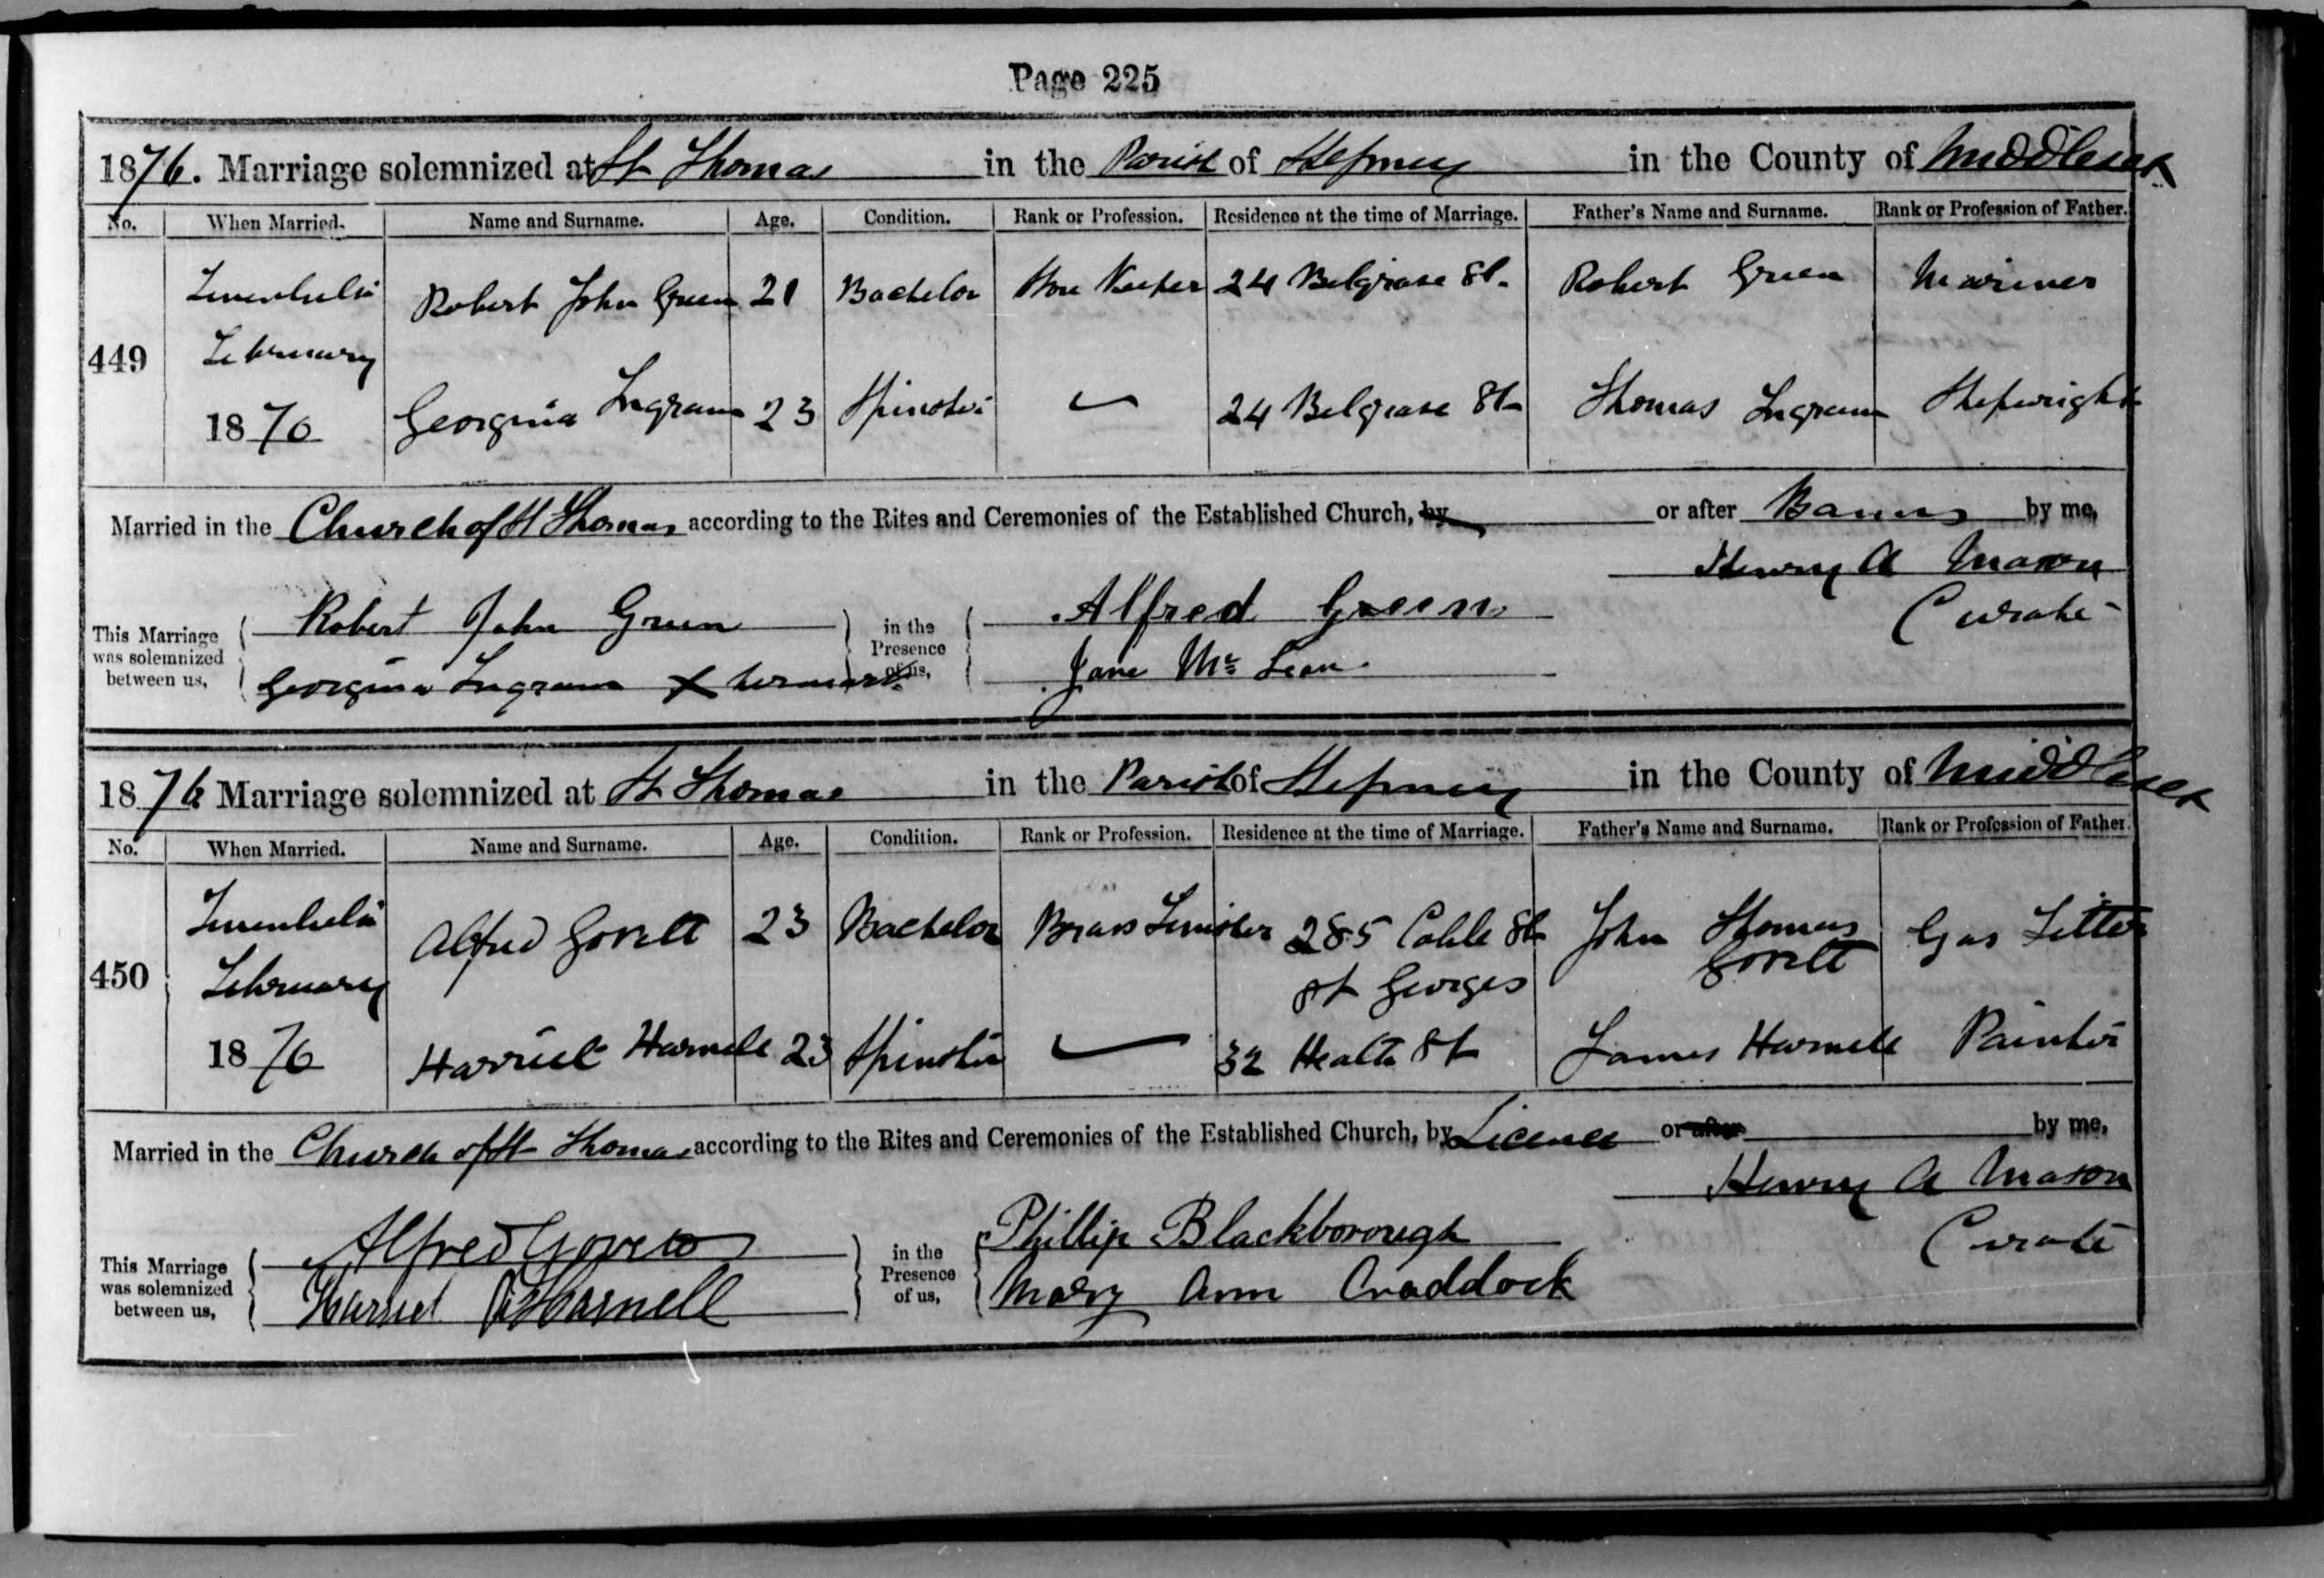 Page 225
1876. Marriage solemnized at St Thomas in the Parish of Stepney in the County of Middlesex
No. When Married. Name and Surname. Age. Condition. Rank or Profession. Residence at the time of Marriage. Father's Name and Surname. Rank or Profession of Father.
Robert John Green 21 Bachelor Keeper 24 Belgrave St. Robert Green Mariner
449 February
1876 Georgina Ingram 23 Spinster 24 Belgrave St Thomas Ingram Shipwright
Married in the Church of St Thomas according to the Rites and Ceremonies of the Established Church, by or after Banns by me,
Henry A Mason
Curate
This Marriage was solemnized between us, Robert John Green in the Presence of us, Alfred Green
Georgina Ingram X her mark Jane Mc Lean.
1876 Marriage solemnized at St Thomas in the Parish of Stepney in the County of Middlesex
No. When Married. Name and Surname. Age. Condition. Rank or Profession. Residence at the time of Marriage. Father's Name and Surname. Rank or Profession of Father.
Alfred Govett 23 Bachelor Brass Finisher 285 Cable St John Thomas Govett Gas Fitter
450 February St Georges
1876 Harriet Harnell 23 Spinster 32 Heath St James Harnell Painter
Married in the Church of St Thomas according to the Rites and Ceremonies of the Established Church, by Licence or after by me,
Henry A Mason
Curate
This Marriage was solemnized between us, Alfred Govett in the Presence of us, Phillip Blackborough
Harriet Harnell Mary Ann Craddock